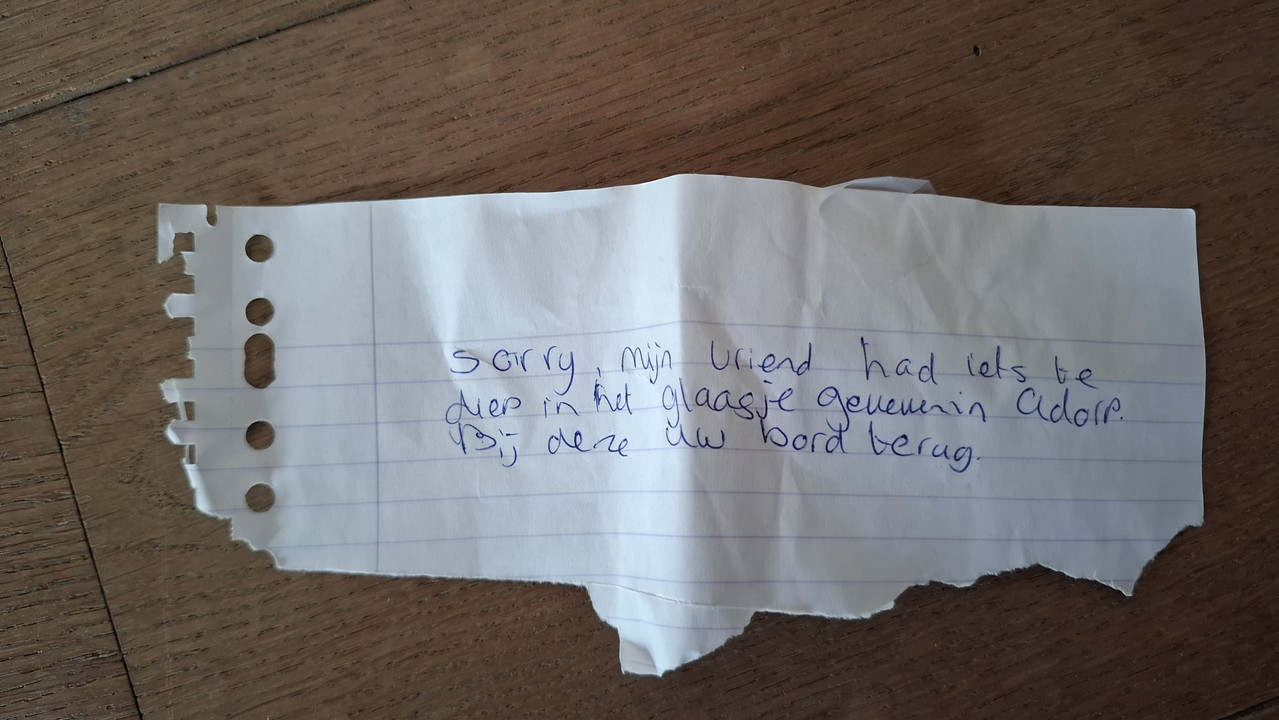 sorry, mijn vriend had iets te
diep in het glaasje gekeken in Adorp.
Bij deze uw bord terug.